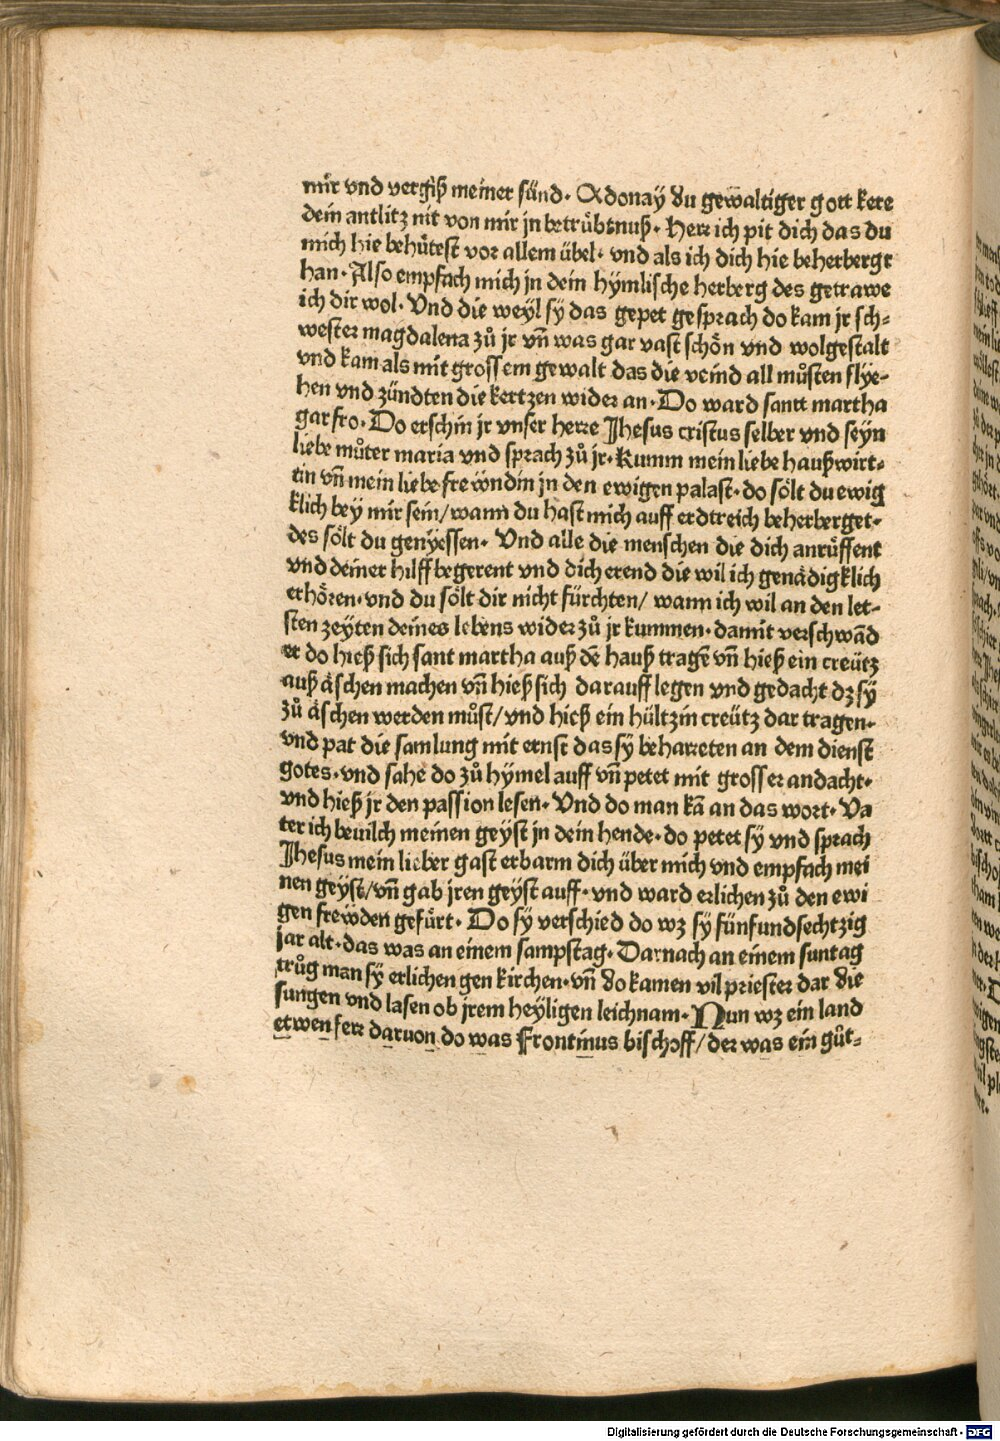 mir vnd vergiß meiner sünd. Adonaÿ du gewaltiger gott kere
dein antlitz nit von mir jn betrübtnuß. Herr ich pit dich das du
mich hie behůtest vor allem übel. vnd als ich dich hie beherbergt
han. Also empfach mich jn dein hÿmlische herberg des getrawe
ich dir wol. Vnd die weÿl sÿ das gepet gesprach do kam jr sch-
wester magdalena zů jr vñ was gar vast schön vnd wolgestalt
vnd kam als mit grossem gewalt das die veind all můsten flye-
hen vnd zündten die kertzen wider an. Do ward sant martha
gar fro. Do erschin jr vnser herre Jhesus cristus selber vnd seyn
liebe můter maria vnd sprach zů jr. Kumm mein liebe haußwirt-
tin vñ mein liebe frewndin jn den ewigen palast. do sölt du ewig
klich beÿ mir sein/ wann du hast mich auff erdtreich beherberget.
des sölt du genÿessen. Vnd alle die menschen die dich anrůffent
vnd deiner hilff begerent vnd dich erend die wil ich genädigklich
erhören. vnd du sölt dir nicht fürchten/ wann ich wil an den let-
sten zeÿten deines lebens wider zů jr kummen. damit verschwãd
er do hieß sich sant martha auß dẽ hauß tragẽ vñ hieß ein creütz
auß äschen machen vñ hieß sich darauff legen vnd gedacht dz sÿ
zů äschen werden můst/ vnd hieß ein hültzin creütz dar tragen.
vnd pat die samlung mit ernst das sÿ beharreten an dem dienst
gotes. vnd sahe do zů hÿmel auff vñ petet mit grosser andacht.
vnd hieß jr den passion lesen. Vnd do man kã an das wort. Va
ter ich beuilch meinen geÿst jn dein hende. do petet sÿ vnd sprach
Jhesus mein lieber gast erbarm dich über mich vnd empfach mei
nen geÿst/ vñ gab jren geÿst auff. vnd ward erlichen zů den ewi
gen frewden gefürt. Do sÿ verschied do wz sÿ fünfundsechtzig
jar alt. das was an einem sampstag. Darnach an einem suntag
trůg man sÿ erlichen gen kirchen. vñ do kamen vil priester dar die
sungen vnd lasen ob jrem heÿligen leichnam. Nun wz ein land
etwen ferr daruon do was Frontinus bischoff/ der was ein gůt-
Digitalisierung gefördert durch die Deutsche Forschungsgemeinschaft - DFG